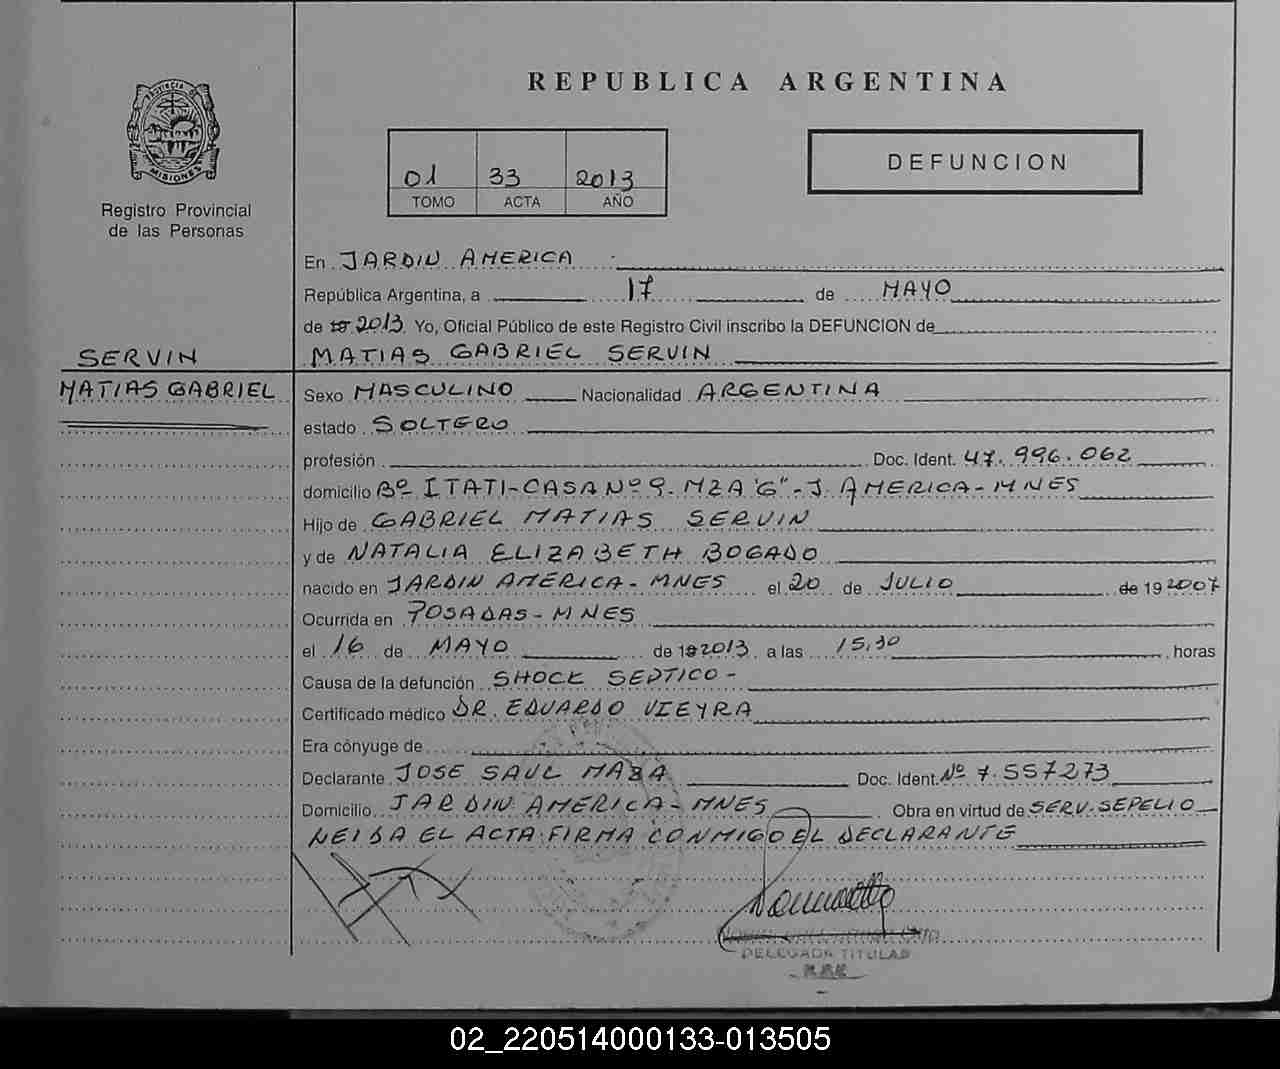 REPUBLICA ARGENTINA
PROVINCIA DE
MISIONES
Registro Provincial
de las Personas
01 33 2013
TOMO ACTA AÑO
DEFUNCION
En JARDIN AMERICA
República Argentina, a 17 de MAYO
de 2013 Yo, Oficial Público de este Registro Civil inscribo la DEFUNCION de
SERVIN
MATIAS GABRIEL
MATIAS GABRIEL SERVIN
Sexo MASCULINO Nacionalidad ARGENTINA
estado SOLTERO
profesión Doc. Ident. 47.996.062
domicilio Bº ITATI-CASA Nº 9. MZA "G"-J. AMERICA-MNES
Hijo de GABRIEL MATIAS SERVIN
y de NATALIA ELIZABETH BOGADO
nacido en JARDIN AMERICA-MNES el 20 de JULIO de 19 2007
Ocurrida en POSADAS-MNES
el 16 de MAYO de 19 2013 a las 15,30 horas
Causa de la defunción SHOCK SEPTICO-
Certificado médico DR. EDUARDO VIEYRA
Era cónyuge de
Declarante JOSE SAUL MAZA Doc. Ident. Nº 7.557273
Domicilio JARDIN AMERICA-MNES Obra en virtud de SERV. SEPELIO
LEIDA EL ACTA FIRMA CONMIGO EL DECLARANTE
DELEGADA TITULAR
02_220514000133-013505